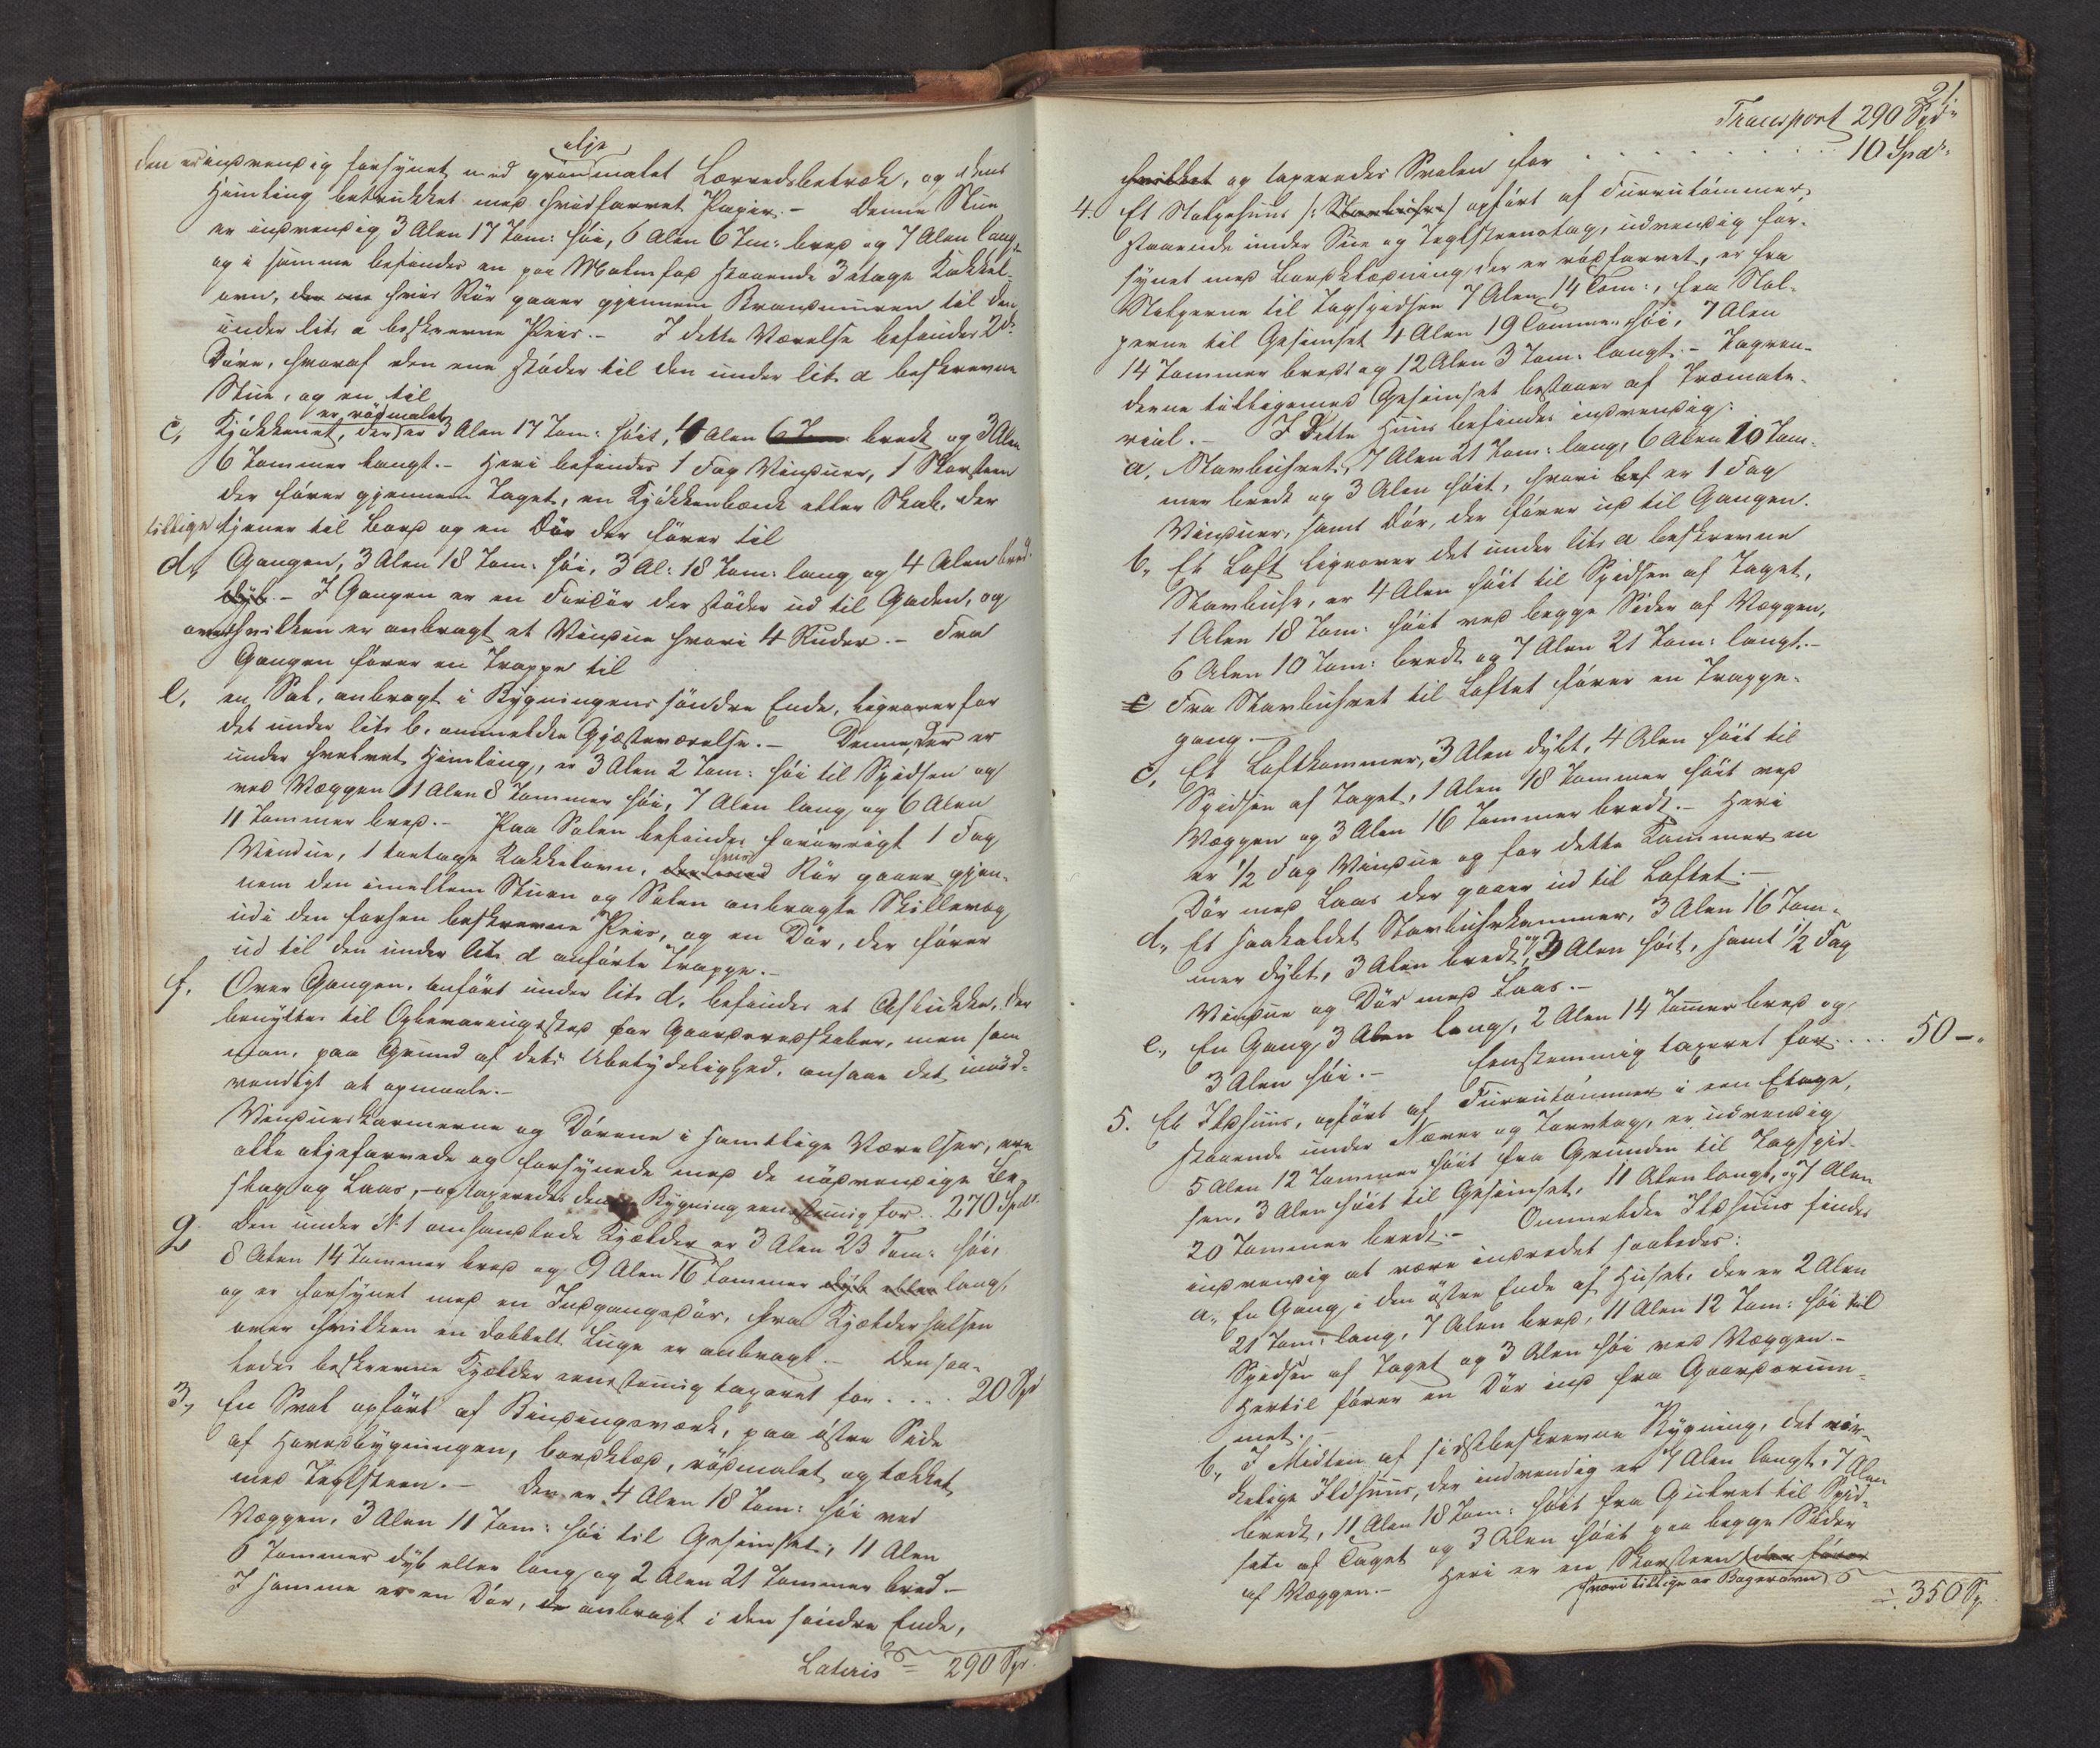 olje
den er indvendig forsynet med grönmalet Lærredsbetræk, og dens
Himling betrukket med hvidfarvet Papir. – Denne Stue
er indvendig 3 Alen 17 Tom: höi, 6 Alen 6 Tm: bred og 7 Alen lang,
og i samme befindes en paa Malmfod staaende 3 etage Kakkel-
ovn, der hvis Rör gaaer gjennem Brandmuren til den
under lit: a beskrevne Peis. – I dette Værelse befindes 2de
Döre, hvoraf den ene stöder til den under lit: a beskrevne
Stue, og en til
er rödmalet
c, Kjökkenet, der er 3 Alen 17 Tom: höit, 4 Alen 6 Tom: bredt og 3 Alen
6 Tommer langt. – Heri befindes 1 Fag Vinduer, 1 Skorsteen
der förer gjennem Taget, en Kjökkenbænk eller Skab, der
tillige tjener til Bord og en Dör der förer til
d, Gangen, 3 Alen 18 Tom: höi, 3 Al: 18 Tom: lang og 4 Alen bred
dyb. – I Gangen er en Fordör der stöder ud til Gaden, og
over hvilken er anbragt et Vindue hvori 4 Ruder. – Fra
Gangen förer en Trappe til
e, en Sal, anbragt i Bygningens söndre Ende, ligeover for
det under lit: b. anmeldte Gjæsteværelse. – Denne, der er
under hvælvet Himling, er 3 Alen 2 Tom: höi til Spidsen og
ved Væggen 1 Alen 8 Tommer höi, 7 Alen lang og 6 Alen
11 Tommer bred. – Paa Salen befindes forövrigt 1 Fag
Vindue, 1 toetages Kakkelovn, der med hvis Rör gaaer gjen-
nem den imellem Stuen og Salen anbragte Skillevæg
udi den forhen beskrevne Peis, og en Dör, der förer
ud til den under lit: d anförte Trappe. –
f. Over Gangen, anfört under lit: d. befindes et Aflukke, der
benyttes til Opbevaringssted for Gaardsredskaber, men som
man, paa Grund af dets Ubetydelighed, ansaae det unöd-
vendigt at opmaale. –
Vindueskarmerne og Dörene i samtlige Værelser, ere
alle oljefarvede og forsynede med de nödvendige Be-
slag og Laas, – og taxeredes denne Bygning eenstemmig for .. 270 Spdl.
g. Den under No 1 omhandlede Kjelder er 3 Alen 23 Tom: höi,
8 Alen 14 Tommer bred og 9 Alen 16 Tommer dyb eller lang,
og er forsynet med en Indgangsdör, fra Kjelderhalsen
over hvilken en dobbelt Luge er anbragt. – Den saa-
ledes beskrevne Kjelder eenstemmig taxeret for .... 20 Spd
3, En Sval opfört af Bindingsværk, paa östre Side
af Hovedbygningen, bordklæd, rödmalet og tækket
med Teglsteen. – Den er 4 Alen 18 Tom: höi ved
Væggen, 3 Alen 11 Tom: höi til Gesimset, 11 Alen
6 Tommer dyb eller lang og 2 Alen 21 Tommer bred. –
I samme er en Dör, de anbragt i den söndre Ende,
Lateris = 290 Spd.
21
Transport 290 Spd
hvilket og taxeredes Svalen for . . . . . . 10 Spd:
4. Et Stolpehuus /: Stavbuhr :/ opfört af Furrutömmer,
staaende under Sue og Teglsteenstag, udvendig for-
synet med Bordklædning der er rödfarvet, er fra
Stolperne til Tagspidsen 7 Alen 14 Tom:, fra Stol-
perne til Gesimset 4 Alen 19 Tommer höi, 7 Alen
14 Tommer bredt og 12 Alen 3 Tom: langt. – Tagren-
derne tilligemed Gesimset bestaaer af Træmate-
rial. – I Dette Huus befindes indvendig:
a, Stavbuhret, 7 Alen 21 Tom: lang, 6 Alen 10 Tom-
mer bredt og 3 Alen höit, hvori bef er 1 Fag
Vinduer, samt Dör, der förer ud til Gangen.
b, Et Loft ligeover det under lit: a beskrevne
Stavbuhr, er 4 Alen höit til Spidsen af Taget,
1 Alen 18 Tom: höit ved begge Sider af Væggen,
6 Alen 10 Tom: bredt og 7 Alen 21 Tom: langt. –
c Fra Stavbuhret til Loftet förer en Trappe-
gang. –
c, Et Loftkammer, 3 Alen dybt, 4 Alen höit til
Spidsen af Taget, 1 Alen 18 Tommer höit ved
Væggen og 3 Alen 16 Tommer bredt. – Heri
er 1/2 Fag Vindue og for dette Kammer en
Dör med Laas der gaaer ud til Loftet. –
d, Et saakaldet Stavbuhrkammer, 3 Alen 16 Tom-
mer dybt, 3 Alen bredt, og 3 Alen höit, samt 1/2 Fag
Vindue og Dör med Laas. –
e, En Gang 3 Alen lang, 2 Alen 14 Tommer bred og
3 Alen höi. – Eenstemmig taxeret for .... 50 –.
5. Et Ildhuus, opfört af Furrutömmer i een Etage,
staaende under Næver og Torvtag, er udvendig
5 Alen 12 Tommer höit fra Grunden til Tagspid-
sen, 3 Alen höit til Gesimset, 11 Alen langt, og 7 Alen
20 Tommer bredt. – Ommeldte Ildhuus findes
indvendig at være indredet saaledes:
a, En Gang i den östre Ende af Huset, der er 2 Alen
21 Tom: lang, 7 Alen bred, 11 Alen 12 Tom: höi til
Spidsen af Taget og 3 Alen höi ved Væggen. –
Hertil förer en Dör ind fra Gaardsrum-
met. –
b, I Midten af sidstbeskrevne Bygning, det vir-
kelige Ildhuus, der indvendig er 7 Alen langt, 7 Alen
bredt, 11 Alen 18 Tom: höit fra Gulvet til Spid-
sen af Taget og 3 Alen höit paa begge Sider
af Væggen. – Heri er en Skorsteen (der förer
hvori tillige er Bagerovn)
÷ 350 Sp